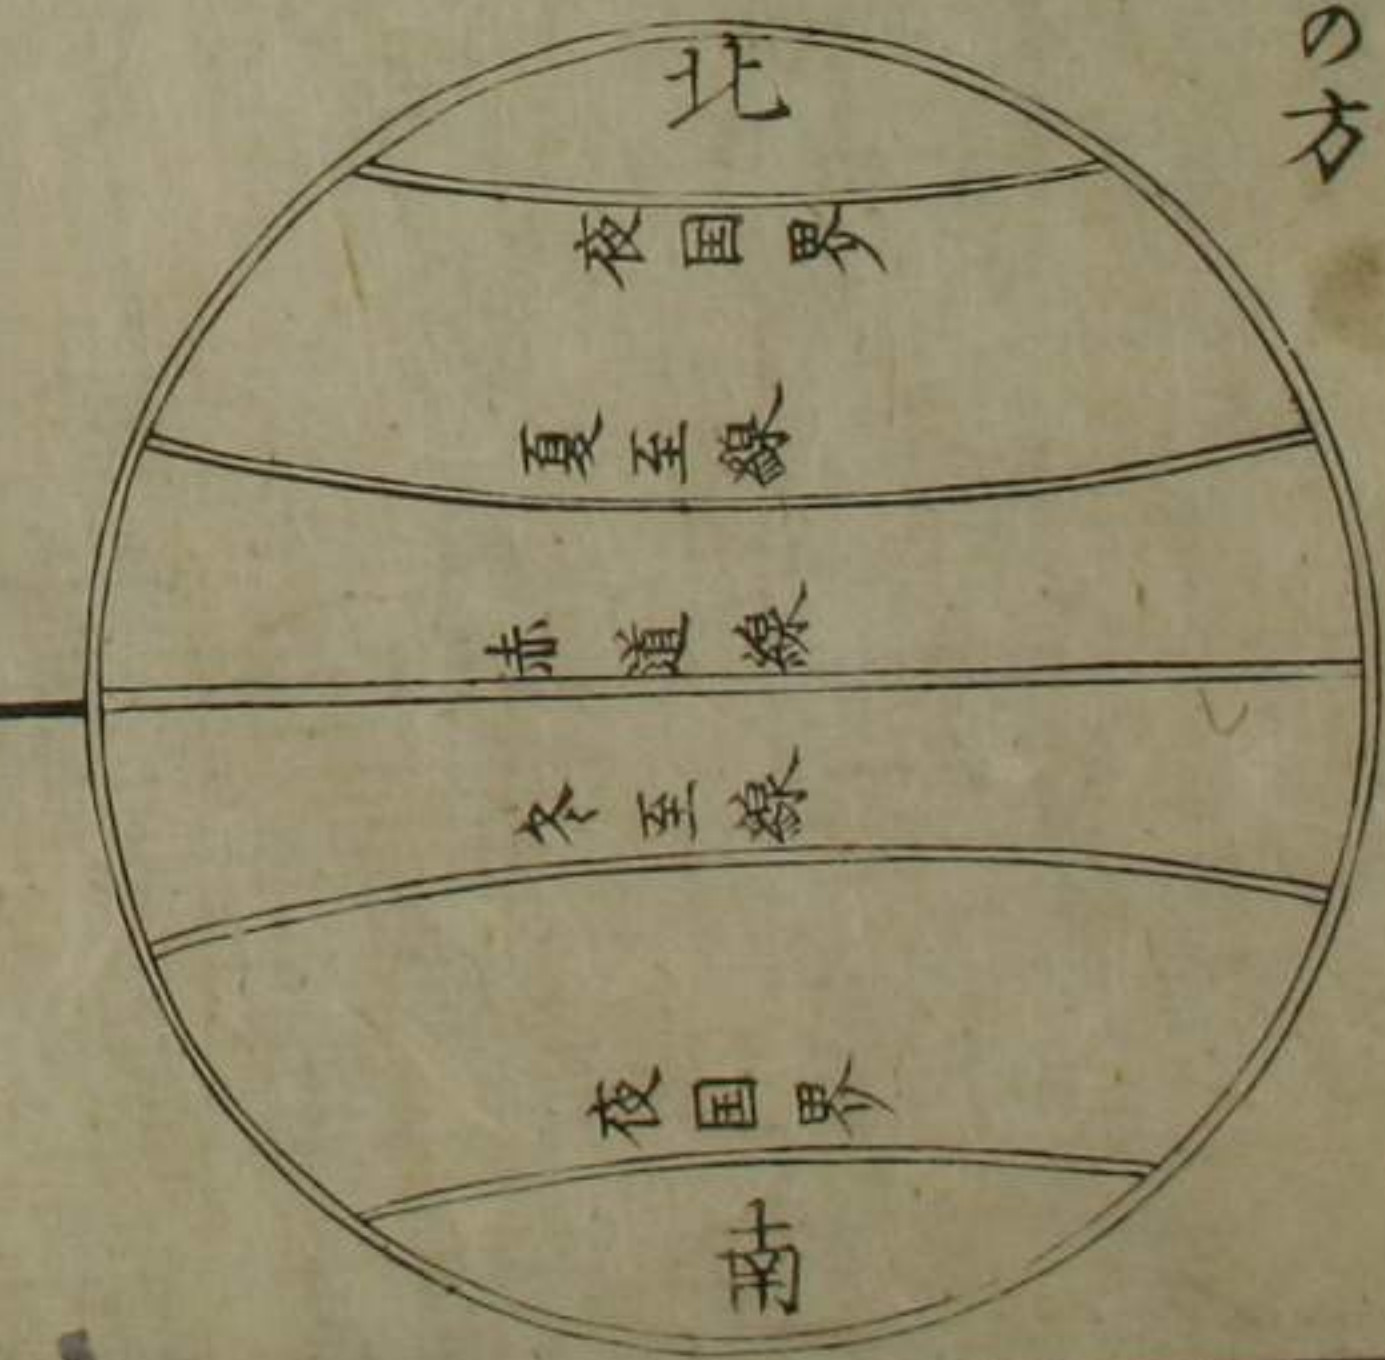 の方
北
夜国界
夏至線
赤道線
冬至線
夜国界
南